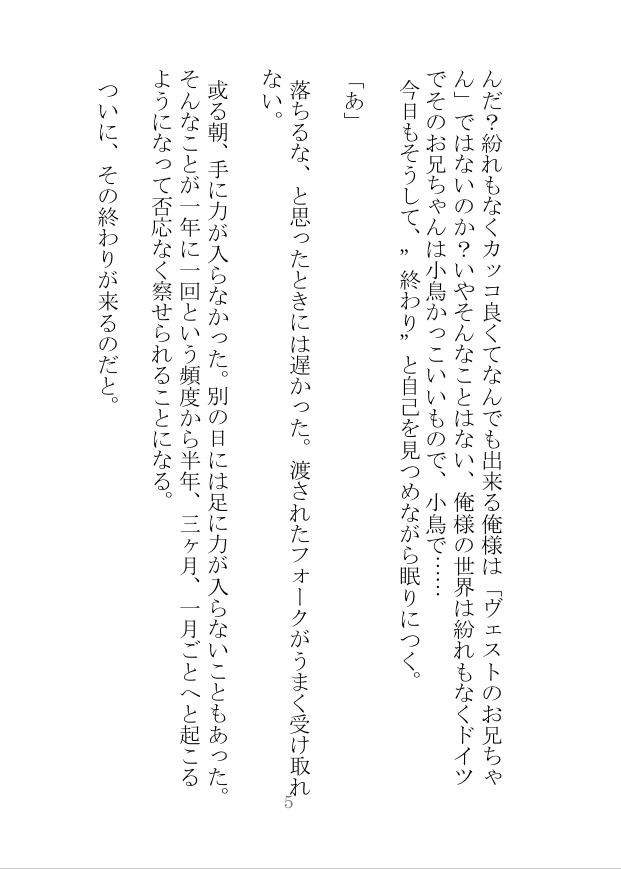 んだ？紛れもなくカッコ良くてなんでも出来る俺様は「ヴェストのお兄ちゃ
ん」ではないのか？いやそんなことはない、俺様の世界は紛れもなくドイツ
でそのお兄ちゃんは小鳥かっこいいもので、小鳥で……
今日もそうして、”終わり”と自己を見つめながら眠りにつく。
「あ」
落ちるな、と思ったときには遅かった。渡されたフォークがうまく受け取れ
ない。
或る朝、手に力が入らなかった。別の日には足に力が入らないこともあった。
そんなことが一年に一回という頻度から半年、三ヶ月、一月ごとへと起こる
ようになって否応なく察せられることになる。
ついに、その終わりが来るのだと。
5